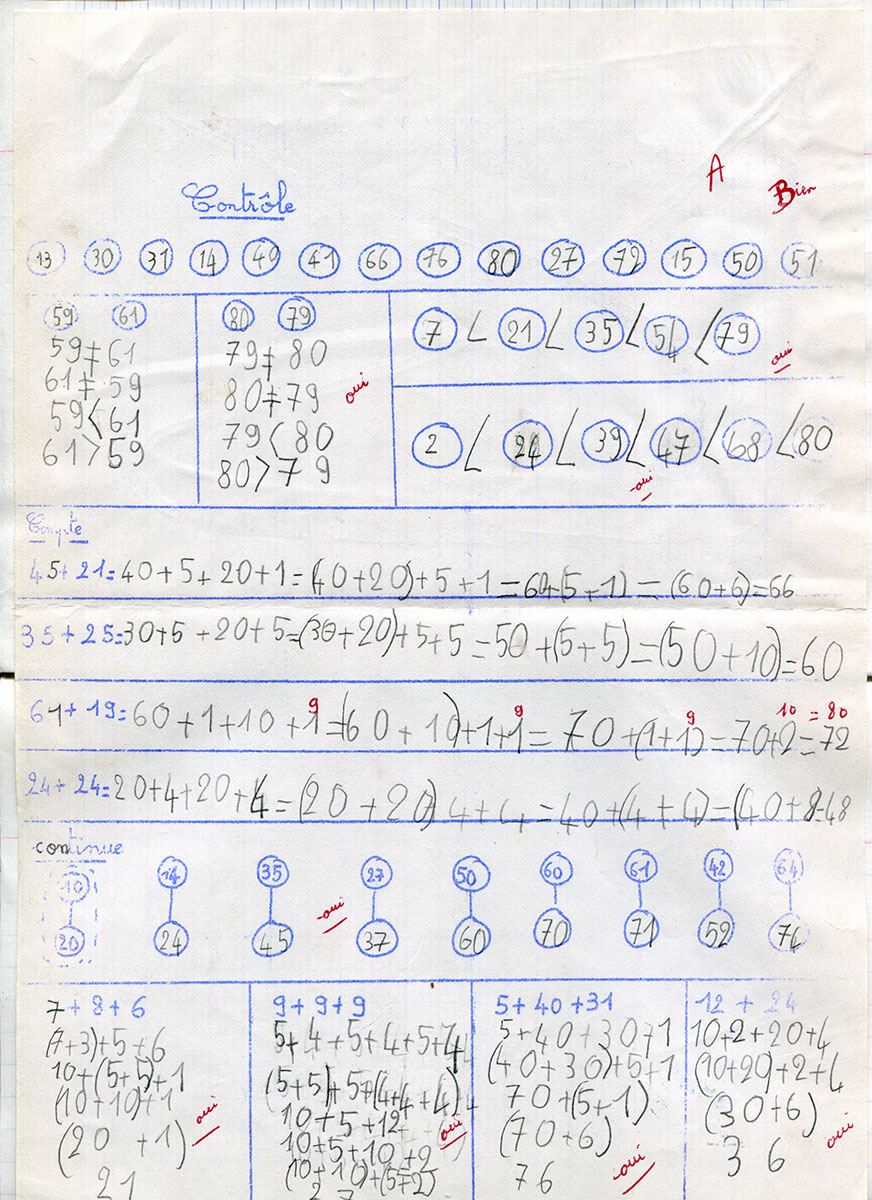 A
Bien
Contrôle
13 30 31 14 49 41 66 76 80 27 72 15 50 51
59 61
59 ≠ 61
61 ≠ 59
59 < 61
61 > 59
80 79
79 ≠ 80
80 ≠ 79
79 < 80
80 > 79
oui
7 < 21 < 35 < 54 < 79
oui
2 < 24 < 39 < 47 < 68 < 80
oui
Compte
45+21=40+5+20+1=(40+20)+5+1=60+(5+1)=(60+6)=66
35+25=30+5+20+5=(30+20)+5+5=50+(5+5)=(50+10)=60
9 9 9 10 = 80
61+19=60+1+10+1=(60+10)+1+1=70+(1+1)=70+2=72
24+24=20+4+20+4=(20+20)4+4=40+(4+4)=(40+8=48
continue
10 14 35 27 50 60 61 42 64
oui
20 24 45 37 60 70 71 52 74
7+8+6
(7+3)+5+6
10+(5+5)+1
(10+10)+1
(20+1)
21
oui
9+9+9
5+4+5+4+5+4
(5+5)+5+(4+4+4)
10+5+12
10+5+10+2
(10+10)+(5+2)
27
oui
5+40+31
5+40+30+1
(40+30)+5+1
70+(5+1)
(70+6)
76
oui
12+24
10+2+20+4
(10+20)+2+4
(30+6)
36
oui